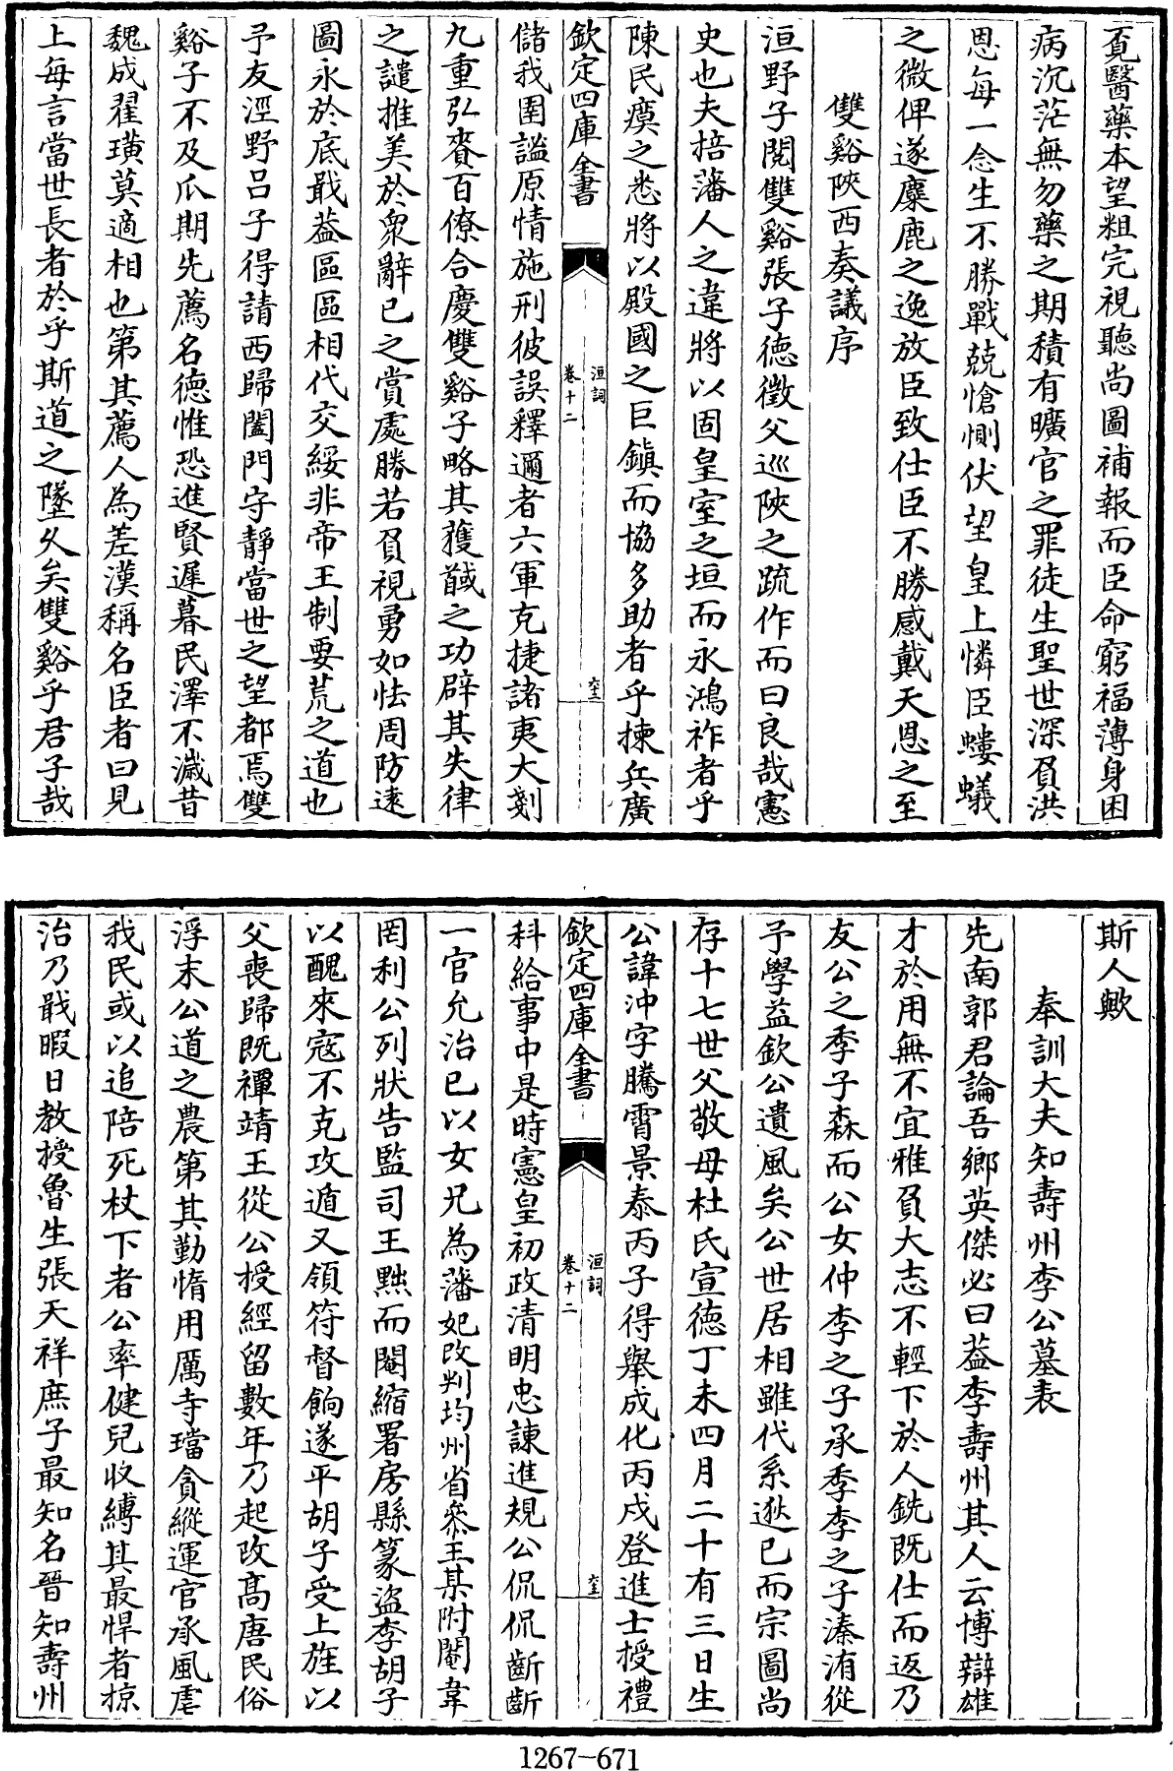 覔醫藥本望粗完視聽尚圖補報而臣命窮福薄身困
病沉茫無勿藥之期積有曠官之罪徒生聖世深負洪
恩每一念生不勝戰兢愴惻伏望皇上憐臣螻蟻
之微俾遂麋鹿之逸放臣致仕臣不勝感戴天恩之至
雙谿陜西奏議序
洹野子閱雙谿張子徳徵父巡陜之疏作而曰良哉憲
史也夫掊藩人之違將以固皇室之垣而永鴻祚者乎
陳民瘼之悉將以殿國之巨鎮而協多助者乎揀兵廣
欽定四庫全書
洹詞
卷十二
儲我圉謐原情施刑彼誤釋邇者六軍克捷諸夷大剗
九重弘賚百僚合慶雙谿子略其獲馘之功辟其失律
之譴推美於衆辭已之賞處勝若負視勇如怯周防逺
圖永於底戢葢區區相代交綏非帝王制要荒之道也
予友涇野吕子得請西歸闔門守靜當世之望都焉雙
谿子不及瓜期先薦名徳惟恐進賢遲暮民澤不濊昔
魏成翟璜莫適相也第其薦人為差漢稱名臣者曰見
上每言當世長者於乎斯道之墜久矣雙谿乎君子哉
斯人歟
奉訓大夫知壽州李公墓表
先南郭君論吾鄉英傑必曰葢李壽州其人云博辯雄
才於用無不宜雅負大志不輕下於人銑既仕而返乃
友公之季子森而公女仲李之子承季李之子溱洧從
予學益欽公遺風矣公世居相雖代系逖已而宗圖尚
存十七世父敬母杜氏宣徳丁未四月二十有三日生
公諱沖字騰霄景泰丙子得舉成化丙戌登進士授禮
欽定四庫全書
洹詞
卷十二
科給事中是時憲皇初政清明忠諫進規公侃侃齗齗
一官允治已以女兄為藩妃改判均州省叅王某附閹韋
罔利公列狀告監司王黜而閹縮署房縣篆盜李胡子
以醜來寇不克攻遁又領符督餉遂平胡子受上旌以
父喪歸既禫靖王從公授經留數年乃起改髙唐民俗
浮末公道之農第其勤惰用厲寺璫貪縱運官承風虐
我民或以追陪死杖下者公率健兒收縛其最悍者掠
治乃戢暇日教授魯生張天祥庶子最知名晉知壽州
1267-671